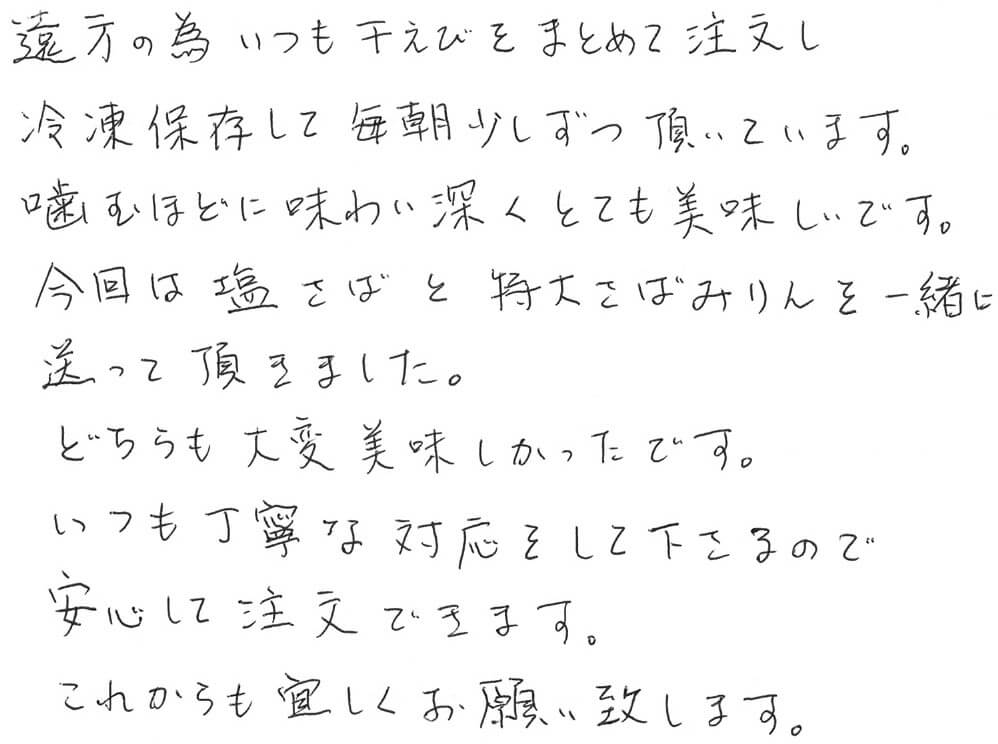 遠方の為いつも干えびをまとめて注文し
冷凍保存して毎朝少しずつ頂いています。
噛むほどに味わい深くとても美味しいです。
今回は塩さばと特大さばみりんを一緒に
送って頂きました。
どちらも大変美味しかったです。
いつも丁寧な対応をして下さるので
安心して注文できます。
これからも宜しくお願い致します。